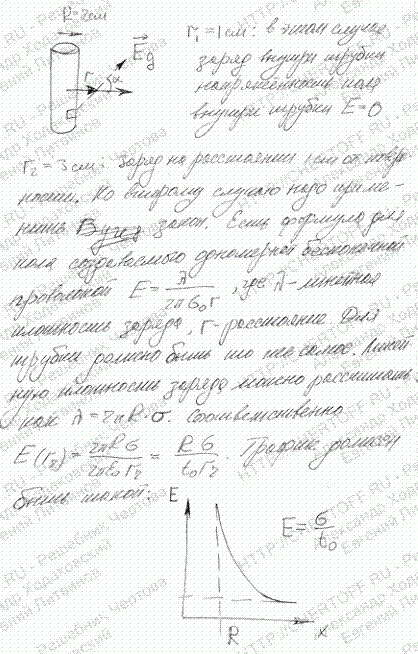 R=2см
E⃗g
r
α
E
r₁=1см: в этом случае
заряд внутри трубки
напряжённость поля
внутри трубки E=0
r₂=3см: заряд на расстоянии 1см от поверх-
ности. Ко второму случаю надо приме-
нить закон. Есть формула для
поля создаваемого одномерной бесконечной
проволокой E = λ/(2πƐ₀r), где λ-линейная
плотность заряда, r-расстояние. Для
трубки должно быть то же самое. Линей-
ную плотность заряда можно рассчитать
как λ=2πR·σ. Соответственно
E(r₂) = 2πRσ/(2πƐ₀r₂) = Rσ/(Ɛ₀r₂). График должен
быть такой:
E
E = σ/Ɛ₀
R
x
HTTP://CHERTOFF.RU - Решебник Чертова
Александр Ходаковский
Евгений Литвинов